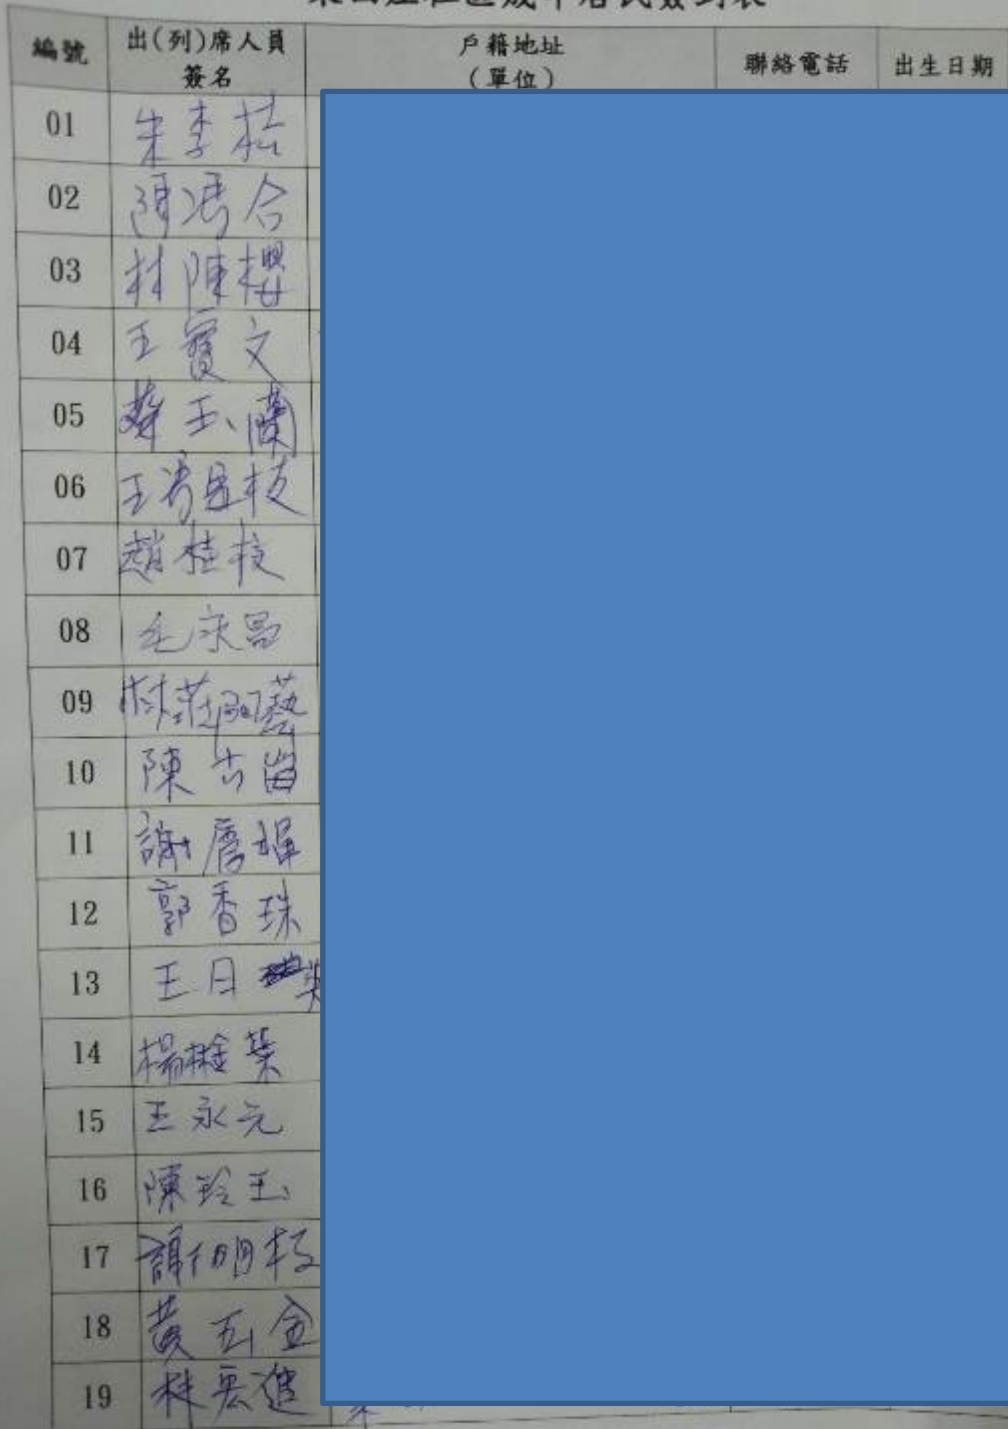 編號 出(列)席人員簽名 戶籍地址(單位) 聯絡電話 出生日期
01 朱李桂
02 陳馮合
03 林陳櫻
04 王寶文
05 蔡玉蘭
06 王
07 趙桂枝
08 毛永昌
09 林莊阿藝
10 陳
11 謝
12 郭香珠
13 王日英
14 楊 葉
15 王永元
16 陳玲玉
17 謝明枝
18 黃玉金
19 林宏進